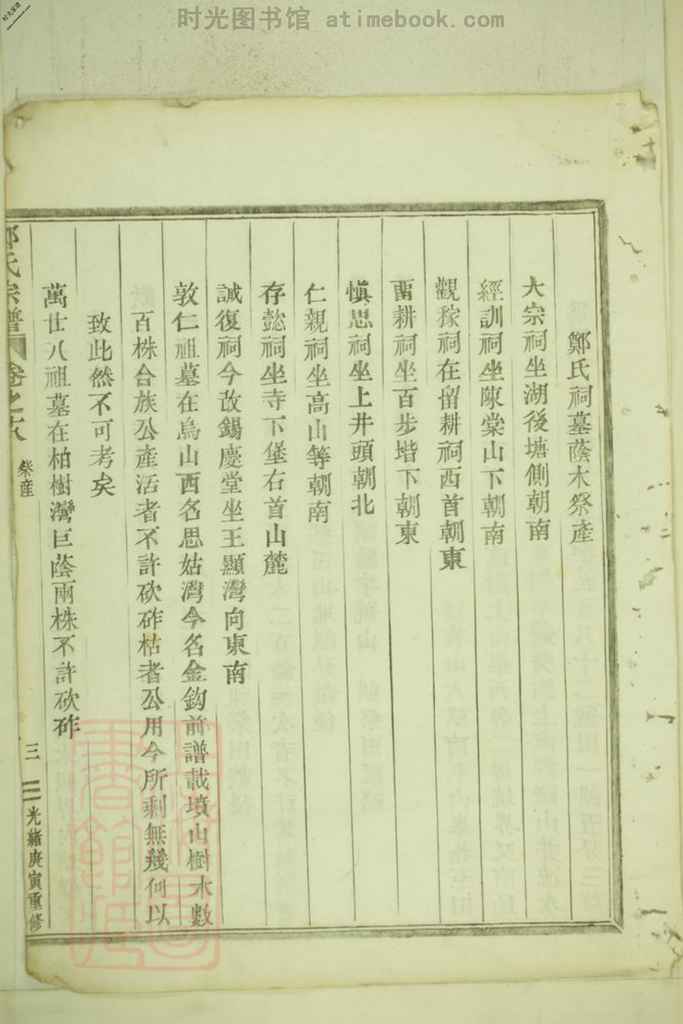 时光图书馆 atimebook.com
鄭氏祠墓蔭木祭產
大宗祠坐湖後塘側朝南
經訓祠坐陳棠山下朝南
觀稼祠在留耕祠西首朝東
留耕祠坐百步堦下朝東
慎思祠坐上井頭朝北
仁親祠坐高山等朝南
存懿祠坐寺下堡右首山麓
誠復祠今改錫慶堂坐王顯灣向東南
敦仁祖墓在烏山西名思姑灣今名金鈎前譜載墳山樹木數
百株合族公產活者不許砍砟枯者公用今所剩無幾何以
致此然不可考矣
萬廿八祖墓在柏樹灣巨蔭兩株不許砍砟
鄭氏宗譜 卷之六 祭產 三 光緒庚寅重修